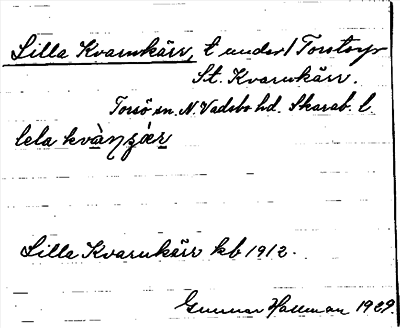 Lilla Kvarnkärr, t under / Torstorp
St. Kvarnkärr.
Torsö sn. N. Vadsbo hd. Skarab. l.
lela kvàŋʂǽr
Lilla Kvarnkärr kb 1912.
Gunnar Hallman 1929.